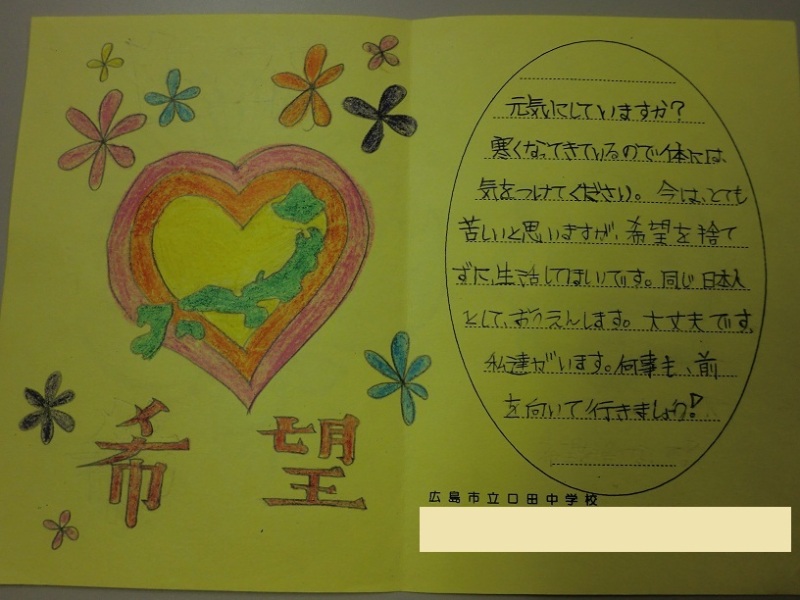 希望
元気にしていますか?
寒くなってきているので体には、
気をつけてください。今は、とても
苦しいと思いますが、希望を捨て
ずに、生活してほしいです。同じ日本人
として、おうえんします。大丈夫です。
私達がいます。何事も、前
を向いて行きましょう!
広島市立口田中学校